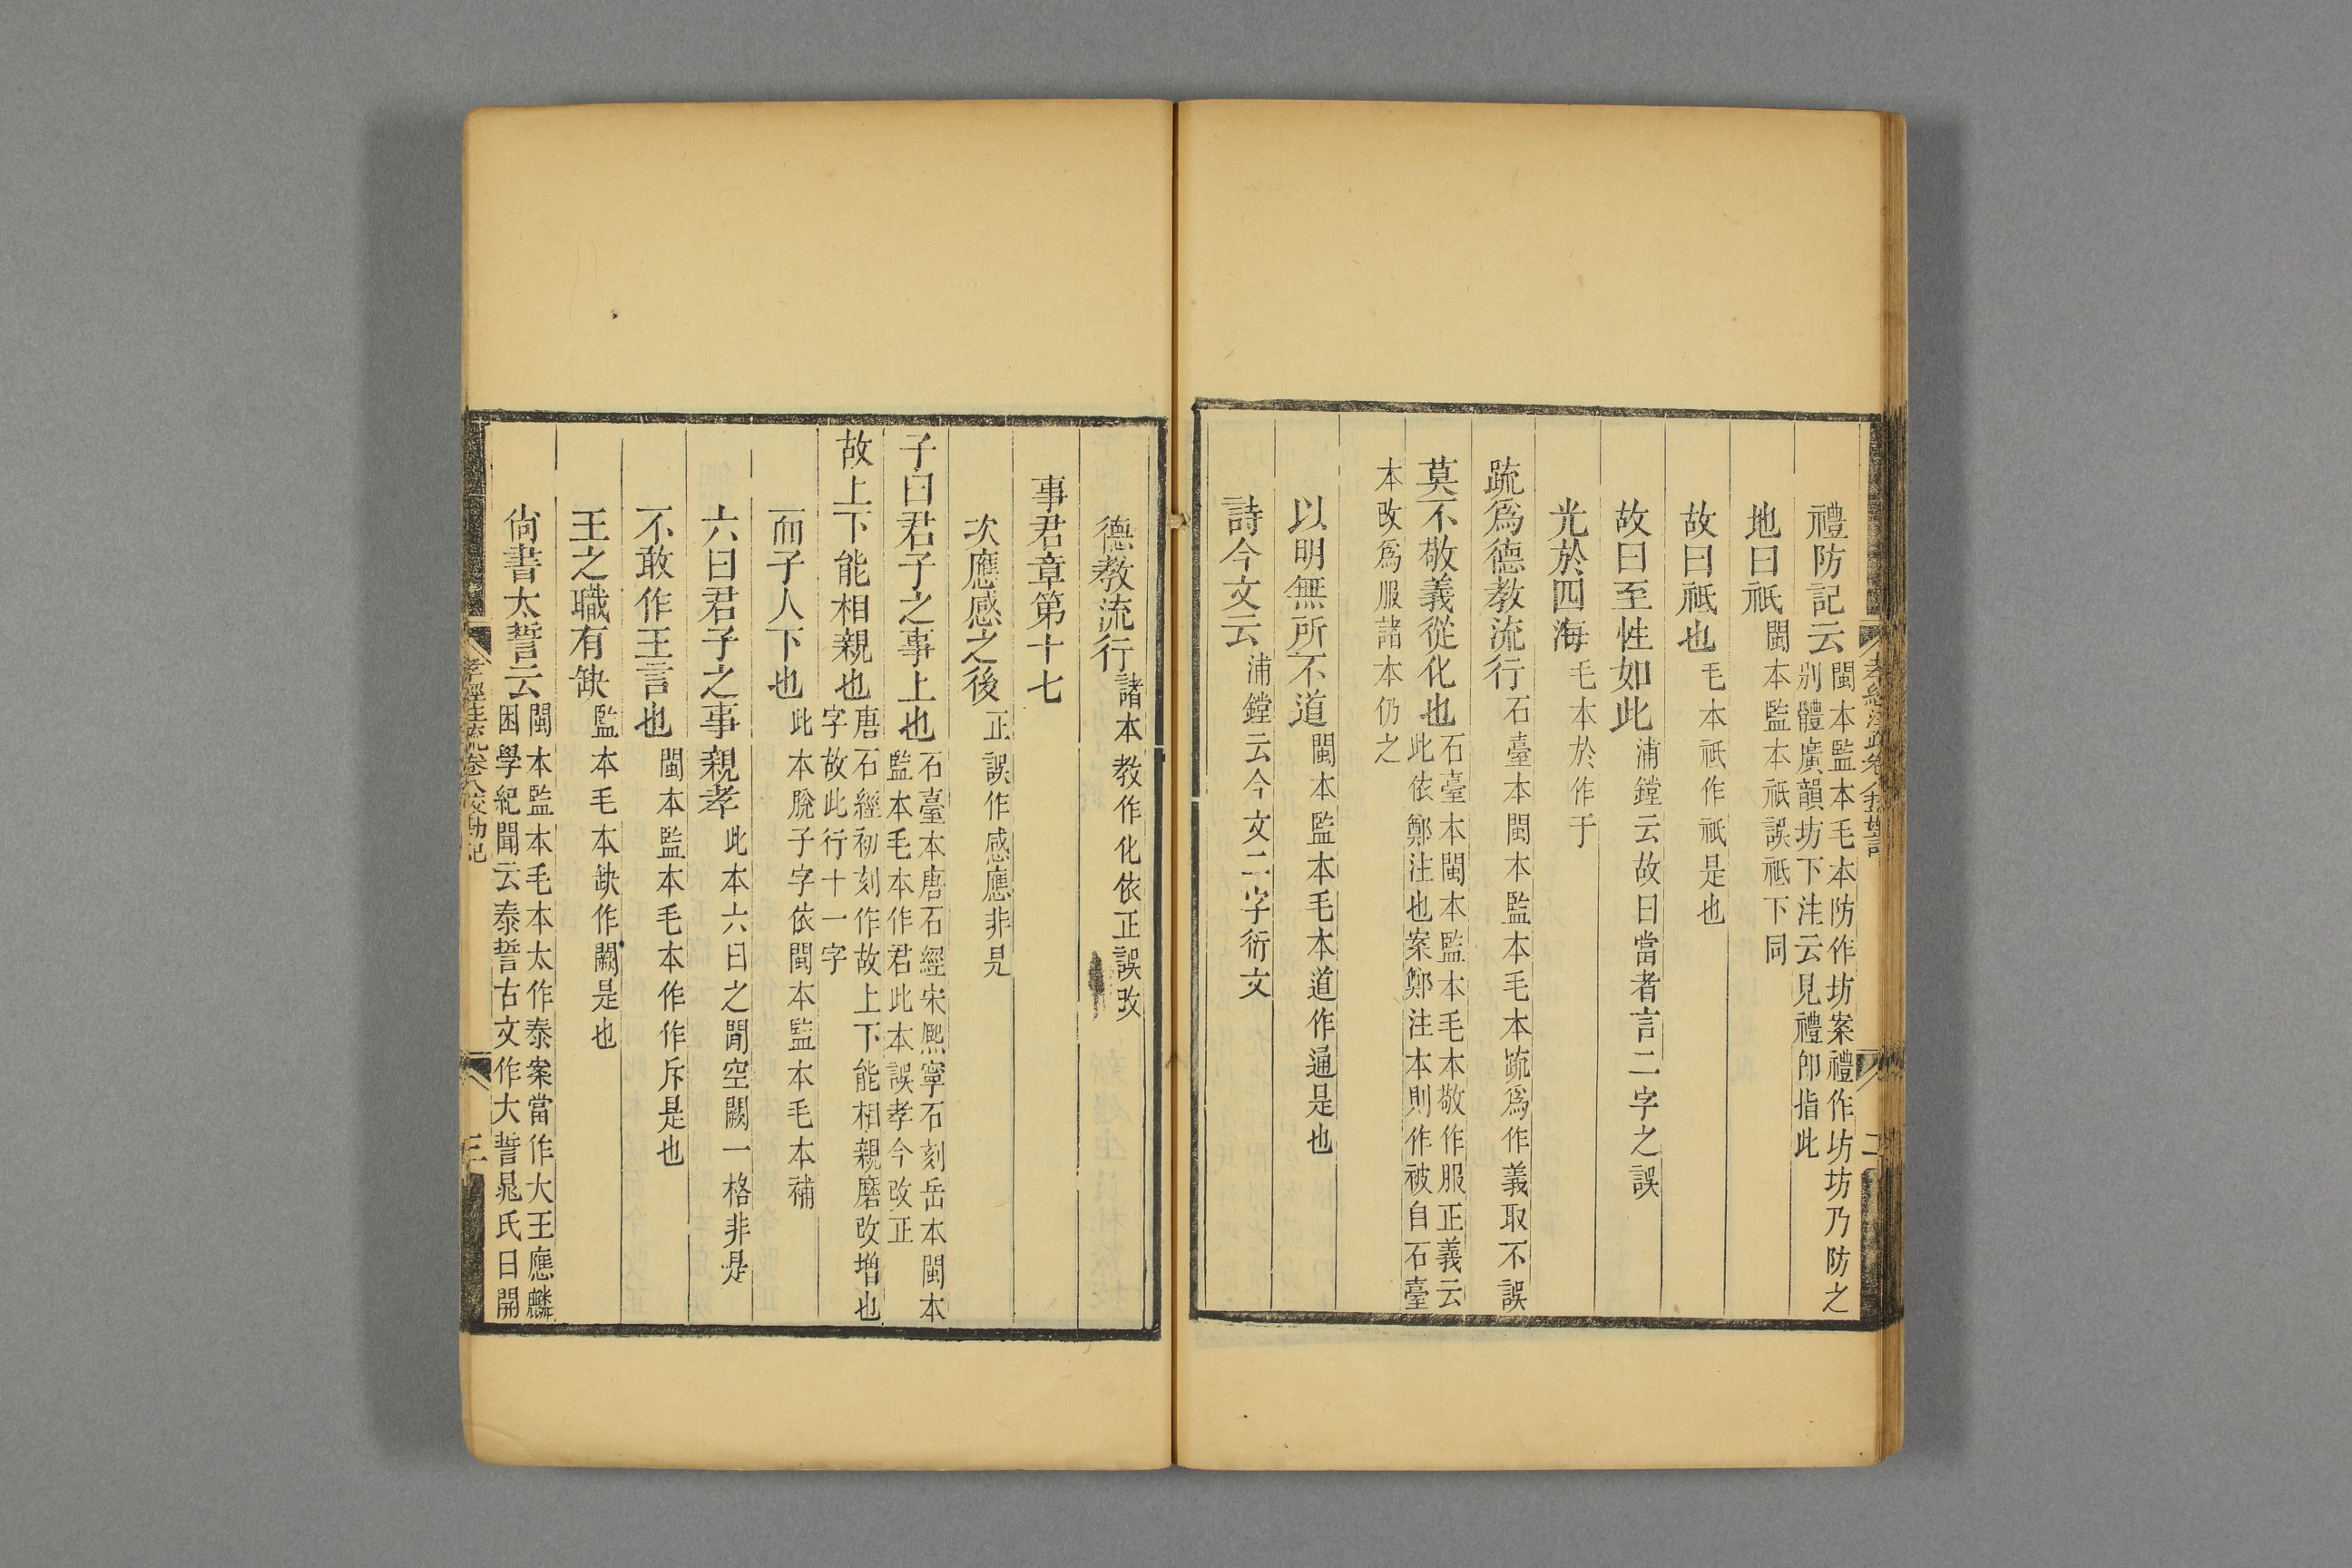 禮防記云閩本監本毛本防作坊案禮作坊坊乃防之別體廣韻坊下注云見禮卽指此
地曰祇閩本監本祇誤祗下同
故曰祗也毛本祗作祇是也
故曰至性如此浦鏜云故曰當者言二字之誤
光於四海毛本於作于
䟽爲德教流行石臺本閩本監本毛本䟽爲作義取不誤
莫不敬義從化也石臺本閩本監本毛本敬作服正義云此依鄭注也案鄭注本則作被自石臺
本改爲服諸本仍之
以明無所不道閩本監本毛本道作通是也
詩今文云浦鏜云今文二字衍文
孝經注疏卷八校勘記 二
德教流行諸本教作化依正誤改
事君章第十七
次應感之後正誤作感應非是
子曰君子之事上也石臺本唐石經宋熈寧石刻岳本閩本監本毛本作君此本誤孝今改正
故上下能相親也唐石經初刻作故上下能相親磨改增也字故此行十一字
而子人下也此本脫子字依閩本監本毛本補
六曰君子之事親孝此本六曰之閒空闕一格非是
不敢作王言也閩本監本毛本作作斥是也
王之職有缺監本毛本缺作闕是也
尙書太誓云閩本監本毛本太作泰案當作大王應麟困學紀聞云泰誓古文作大誓晁氏曰開
孝經注疏卷八校勘記 三